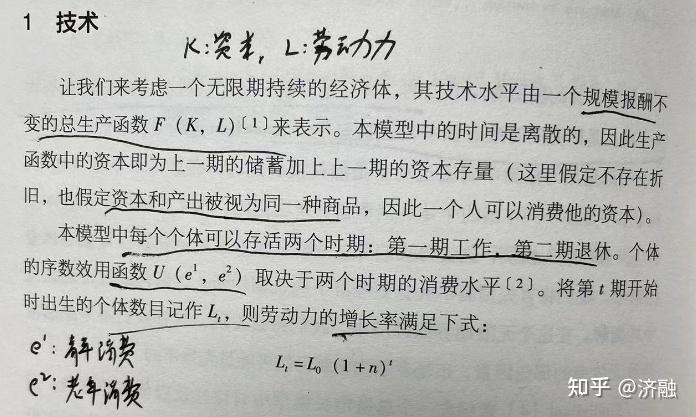 1 技术
K:资本, L:劳动力
让我们来考虑一个无限期持续的经济体，其技术水平由一个规模报酬不
变的总生产函数 F (K, L)〔1〕来表示。本模型中的时间是离散的，因此生产
函数中的资本即为上一期的储蓄加上上一期的资本存量（这里假定不存在折
旧，也假定资本和产出被视为同一种商品，因此一个人可以消费他的资本）。
本模型中每个个体可以存活两个时期：第一期工作，第二期退休。个体
的序数效用函数 U (e¹, e²) 取决于两个时期的消费水平〔2〕。将第 t 期开始
时出生的个体数目记作 Lₜ，则劳动力的增长率满足下式：
e¹:青年消费
Lₜ = L₀ (1+n)ᵗ
e²:老年消费
知乎 @济融